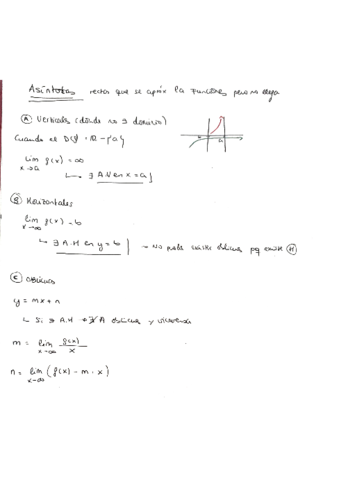 Asíntotas rectas que se aprox la Funciones pero no llega
Ⓐ Verticales (donde no ∃ dominio)
Cuando el D(f) = R - {a}
lim f(x) = ∞
x→a
↳ ∃ A.V en x = a
a
Ⓑ Horizontales
lim f(x) = b
x→∞
↳ ∃ A.H en y = b → No puede existir oblicuas pq existe Ⓗ
Ⓒ oblicuas
y = mx + n
↳ Si ∃ A.H → ∄ A oblicua y viceversa
m = lim f(x)/x
x→∞
n = lim (f(x) - m · x)
x→∞